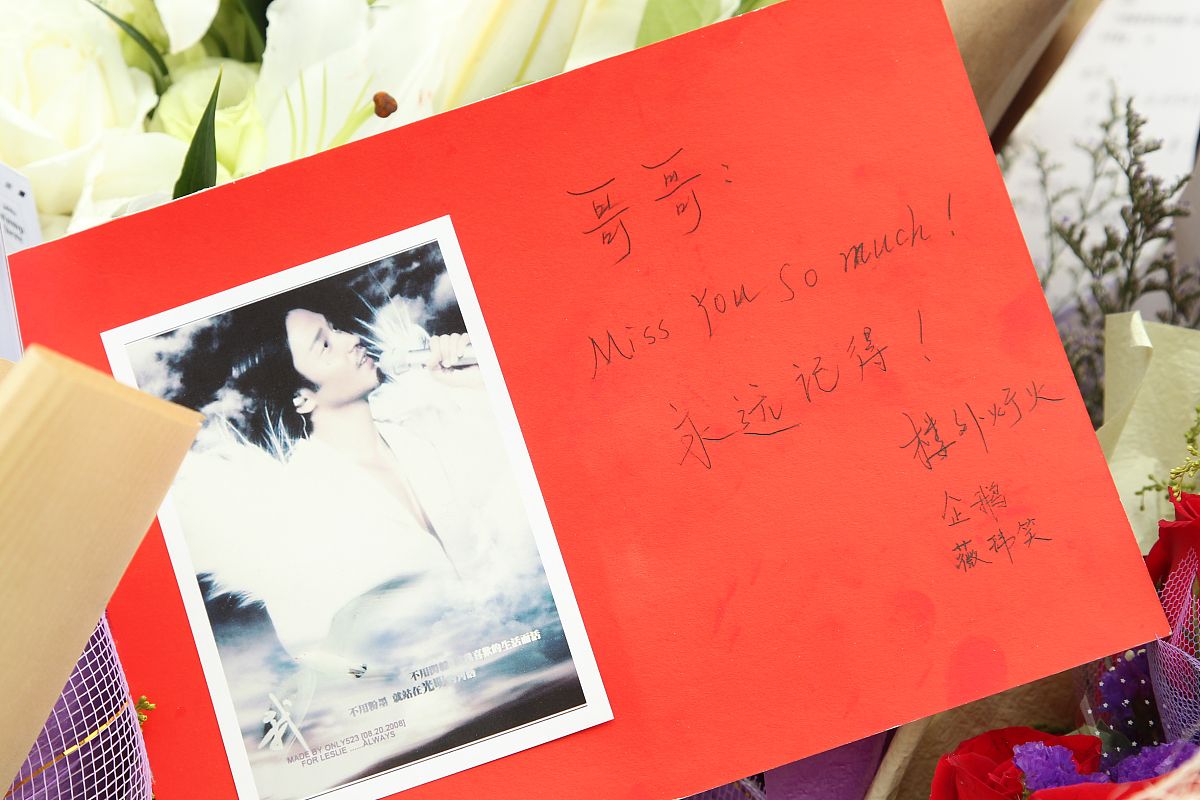 哥哥：
Miss You So much！
永远记得！
楼外灯火
企鹅
薇玮笑
不用閃躲 為我喜歡的生活而活
不用粉墨 就站在光明的角落
我
MADE BY ONLY523 [08.20.2008]
FOR LESLIE ......ALWAYS